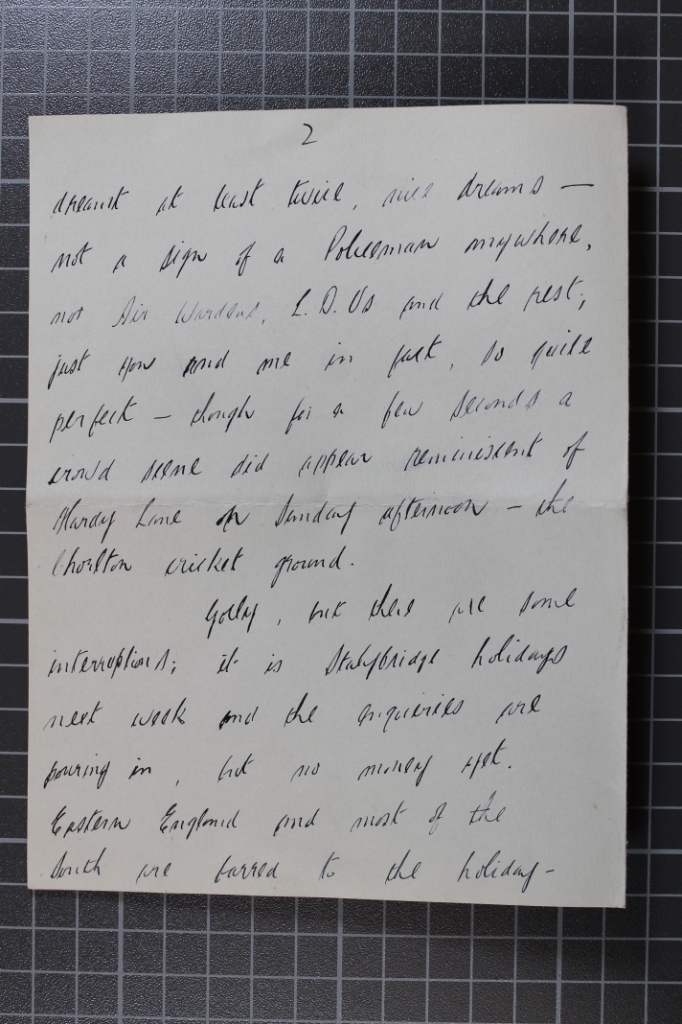 2
dreamt at least twice, nice dreams —
not a sign of a Policeman anywhere,
nor Air Wardens, L.D.Vs and the rest;
just you and me in fact, so quite
perfect — though for a few seconds a
crowd scene did appear reminiscent of
Hardy Lane on Sunday afternoon — the
Chorlton cricket ground.
Golly, but there are some
interruptions; it is Stalybridge holidays
next week and the enquiries are
pouring in, but no money yet.
Eastern England and most of the
South are barred to the holiday-